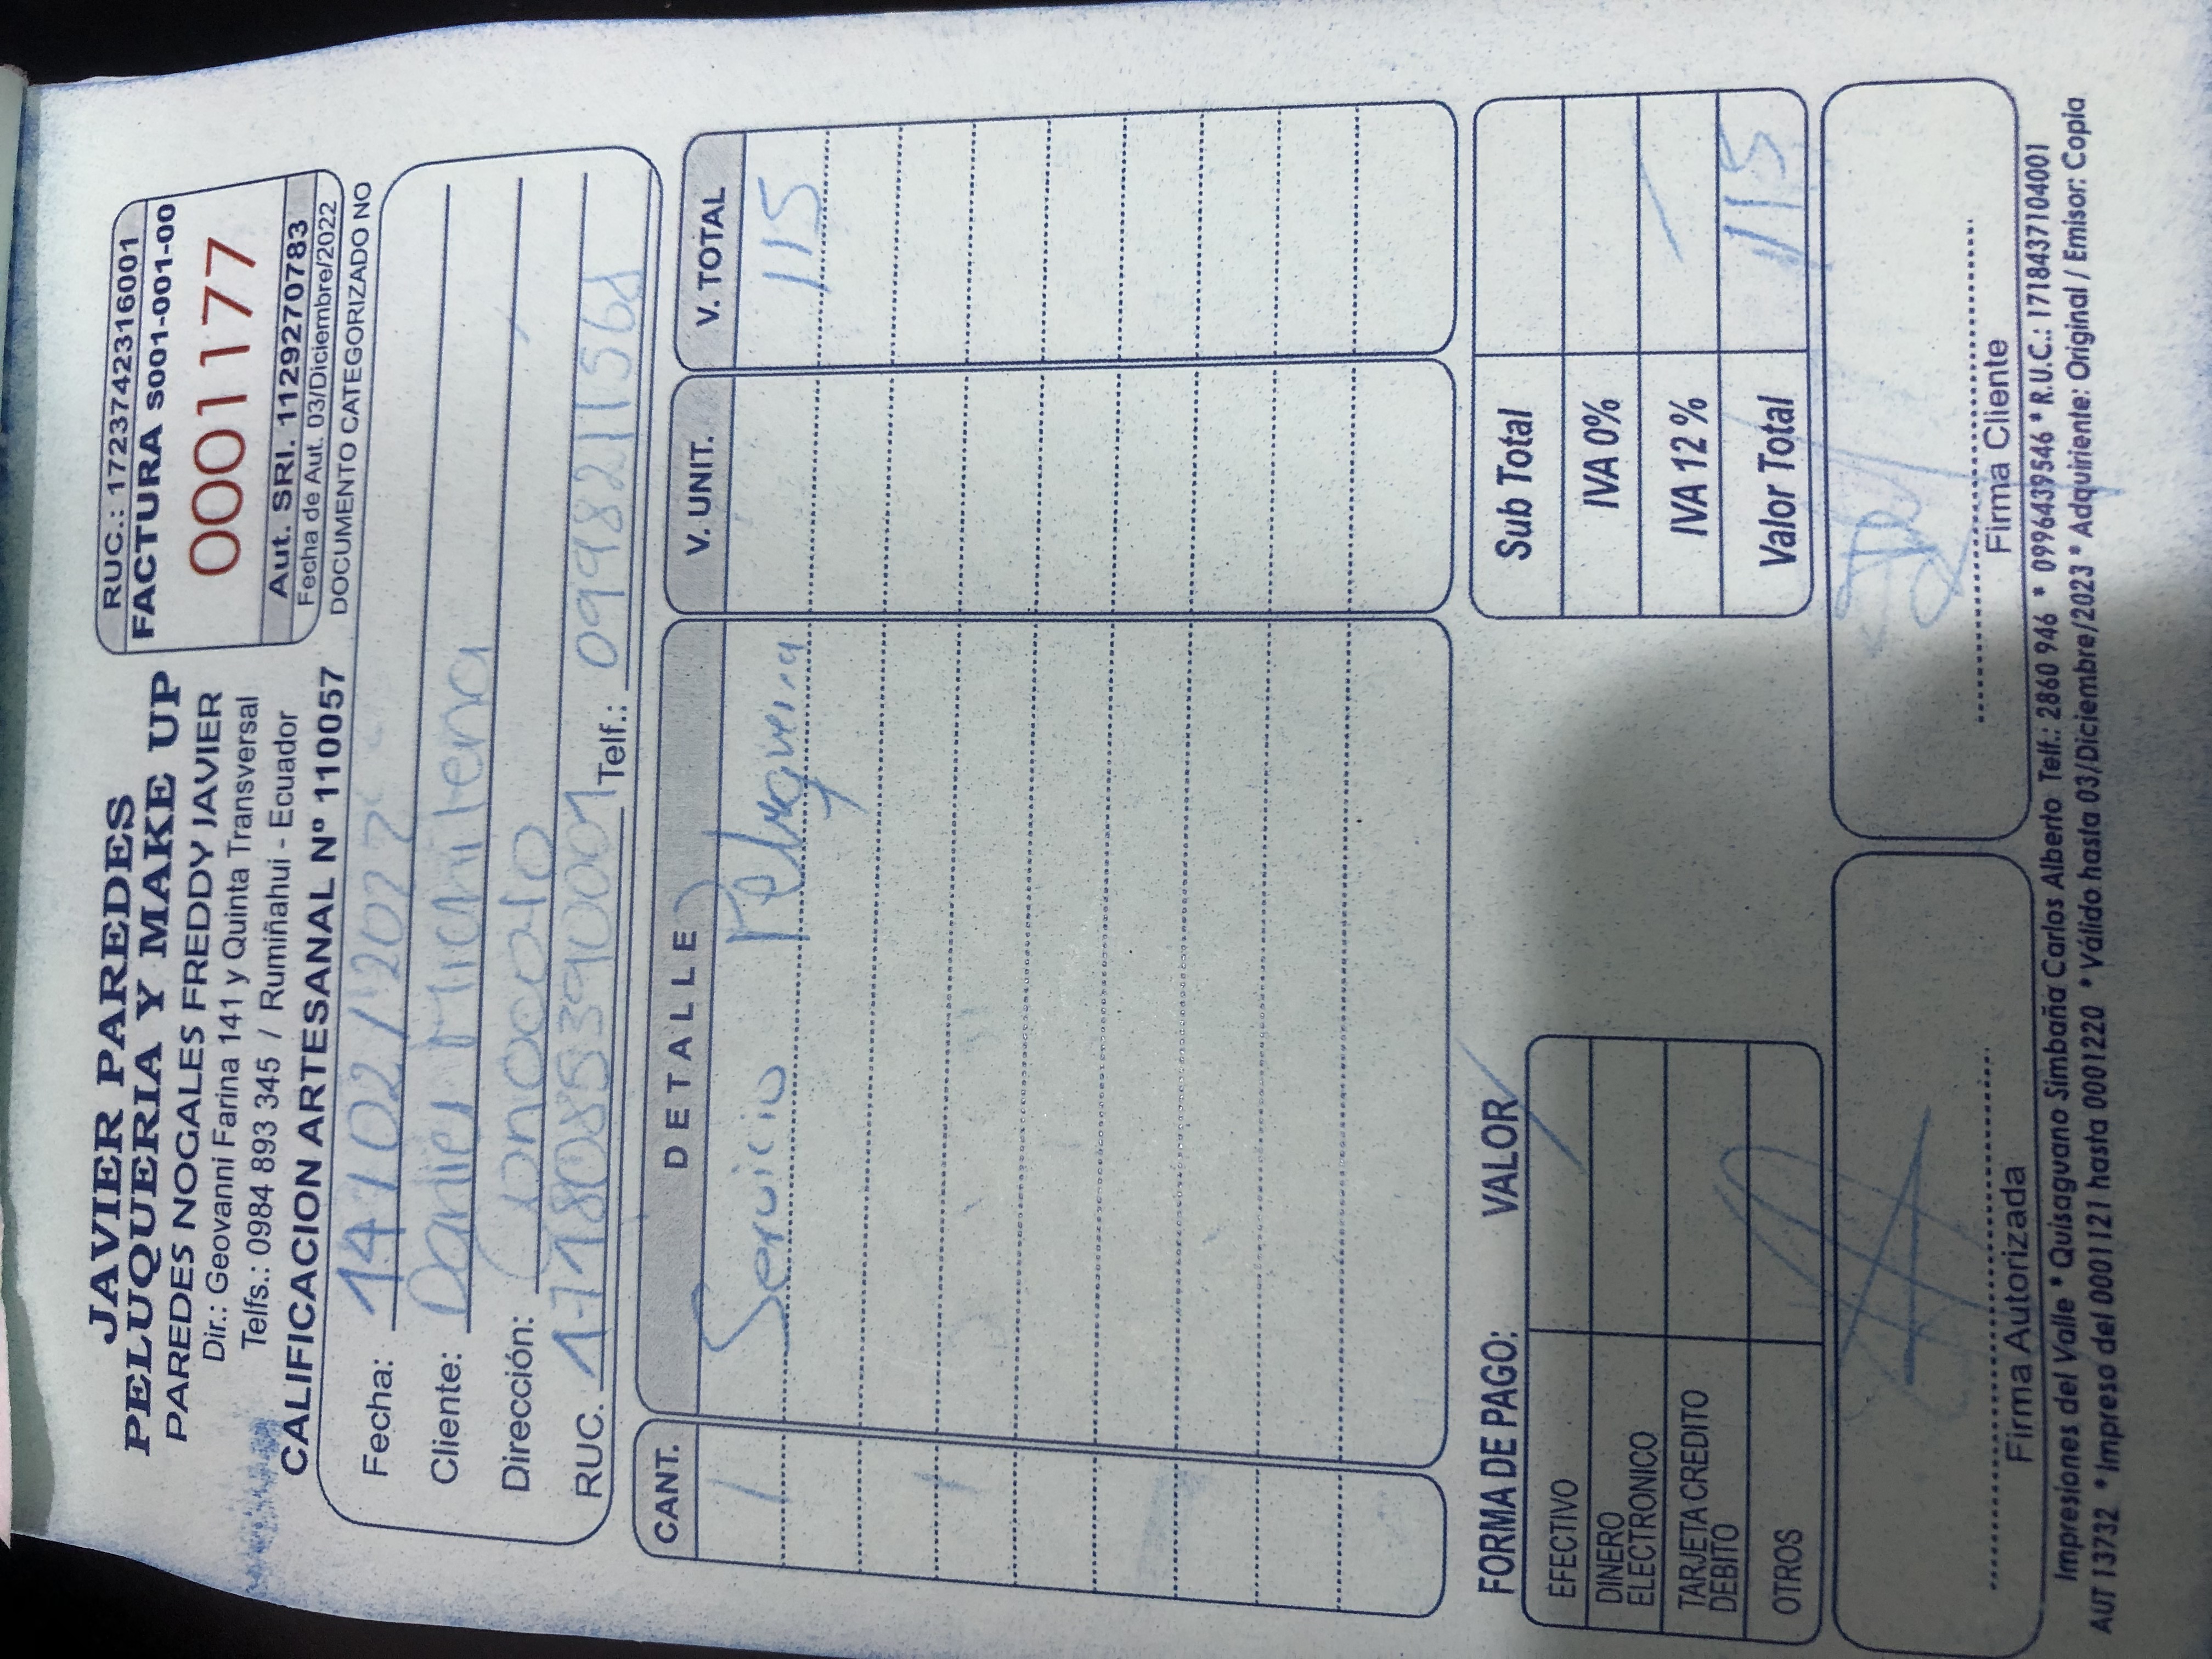 JAVIER PAREDES
PELUQUERIA Y MAKE UP
PAREDES NOGALES FREDDY JAVIER
Dir.: Geovanni Farina 141 y Quinta Transversal
Telfs.: 0984 893 345 / Rumiñahui - Ecuador
CALIFICACION ARTESANAL Nº 110057
RUC.: 1723742316001
FACTURA S001-001-00
0001177
Aut. SRI. 1129270783
Fecha de Aut. 03/Diciembre/2022
DOCUMENTO CATEGORIZADO NO
Fecha: 14/02/2022
Cliente: Daniel Michilena
Dirección: Conocoto
RUC. 1718085390001 Telf.: 0998211568
CANT. DETALLE V. UNIT. V. TOTAL
1 Servicio Peluqueria 115
1
FORMA DE PAGO: VALOR
EFECTIVO
DINERO
ELECTRONICO
TARJETA CREDITO
DEBITO
OTROS
Sub Total
IVA 0%
IVA 12 %
Valor Total 115
Firma Autorizada
Firma Cliente
Impresiones del Valle * Quisaguano Simbaña Carlos Alberto Telf.: 2860 946 * 0996439546 * R.U.C.: 1718437104001
AUT 13732 * Impreso del 0001121 hasta 0001220 * Válido hasta 03/Diciembre/2023 * Adquiriente: Original / Emisor: Copia